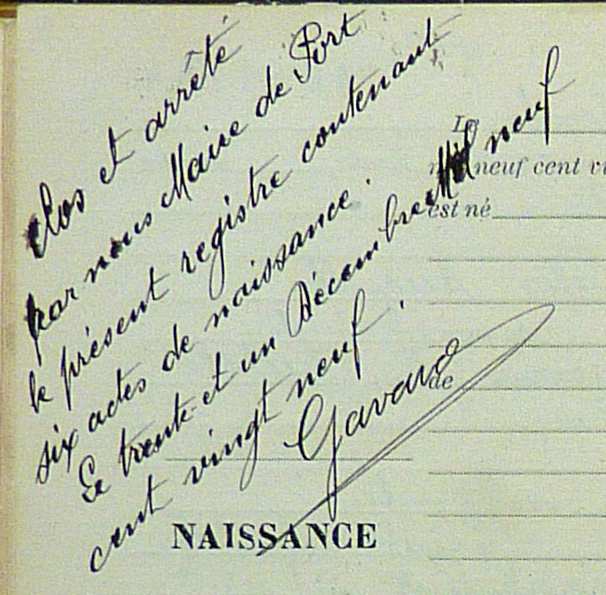 Clos et arrêté
par nous Maire de Port
le présent registre contenant
six actes de naissance.
Le trente et un Décembre Mil neuf
cent vingt neuf.
Gavard
Le
neuf cent vi
est né
de
NAISSANCE